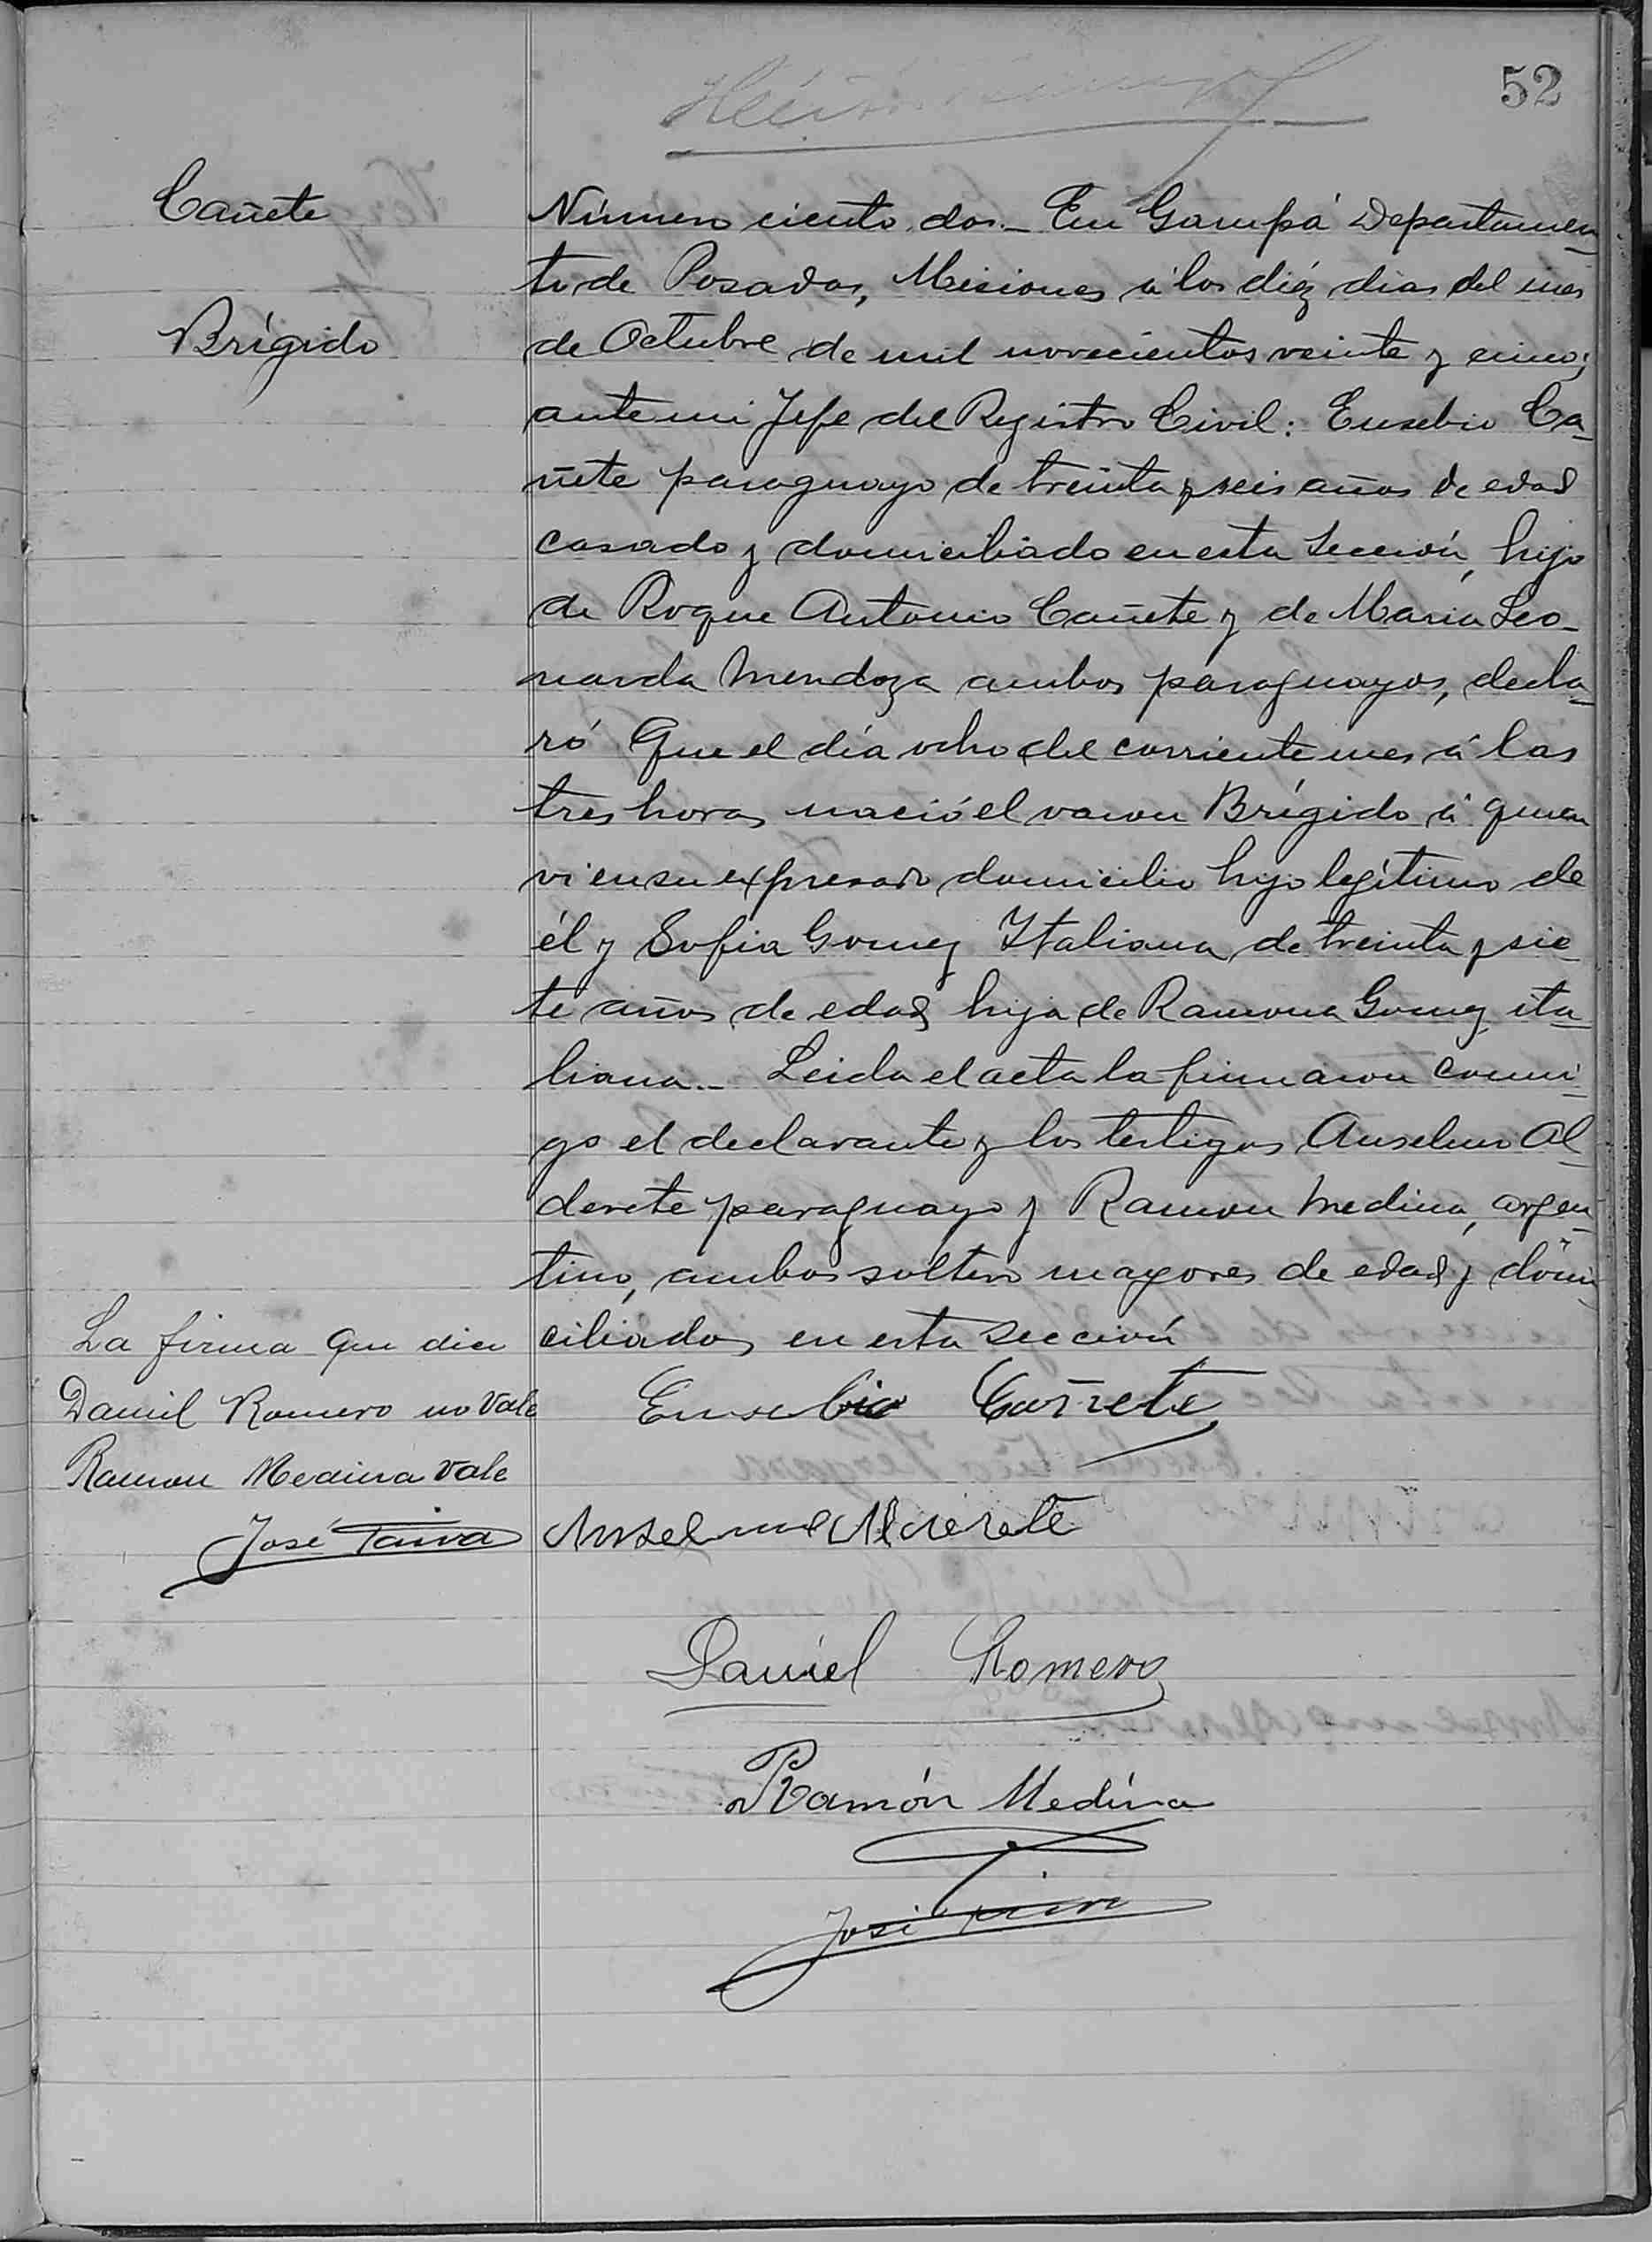 52
Cañete
Brígido
Número ciento dos._ En Garupá Departamen_
to de Posadas, Misiones á los diéz dias del mes
de Octubre de mil novecientos veinte y cinco;
ante mi Jefe del Registro Civil: Eusebio Ca_
ñete paraguayo de treinta y seis años de edad
casado y domiciliado en esta Sección, hijo
de Roque Antonio Cañete y de Maria Leo_
narda Mendoza ambos paraguayos, decla_
ró Que el día ocho del corriente mes á las
tres horas nació el varon Brígido á quien
vi en su expresado domicilio hijo legítimo de
él y Sofia Gomez Italiana de treinta y sie_
te años de edad hija de Ramona Gomez ita_
liana._ Leida el acta la firmaron conmi_
go el declarante y los testigos Anselmo Al_
derete paraguayo y Ramon Medina, argen_
tino, ambos soltero mayores de edad y domi_
ciliados en esta Sección
La firma que dice
Daniel Romero no vale
Ramon Medina vale
José Paiva
Eusebio Cañete
Anselmo Alderete
Daniel Romero
Ramón Medina
José Paiva